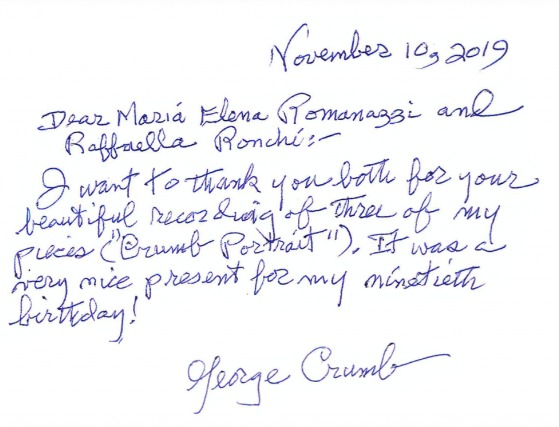 November 10, 2019
Dear Mariá Elena Romanazzi and
Raffaella Ronchi:-
I want to thank you both for your
beautiful recording of three of my
pieces ("Crumb Portrait"). It was a
very nice present for my ninetieth
birthday!
George Crumb